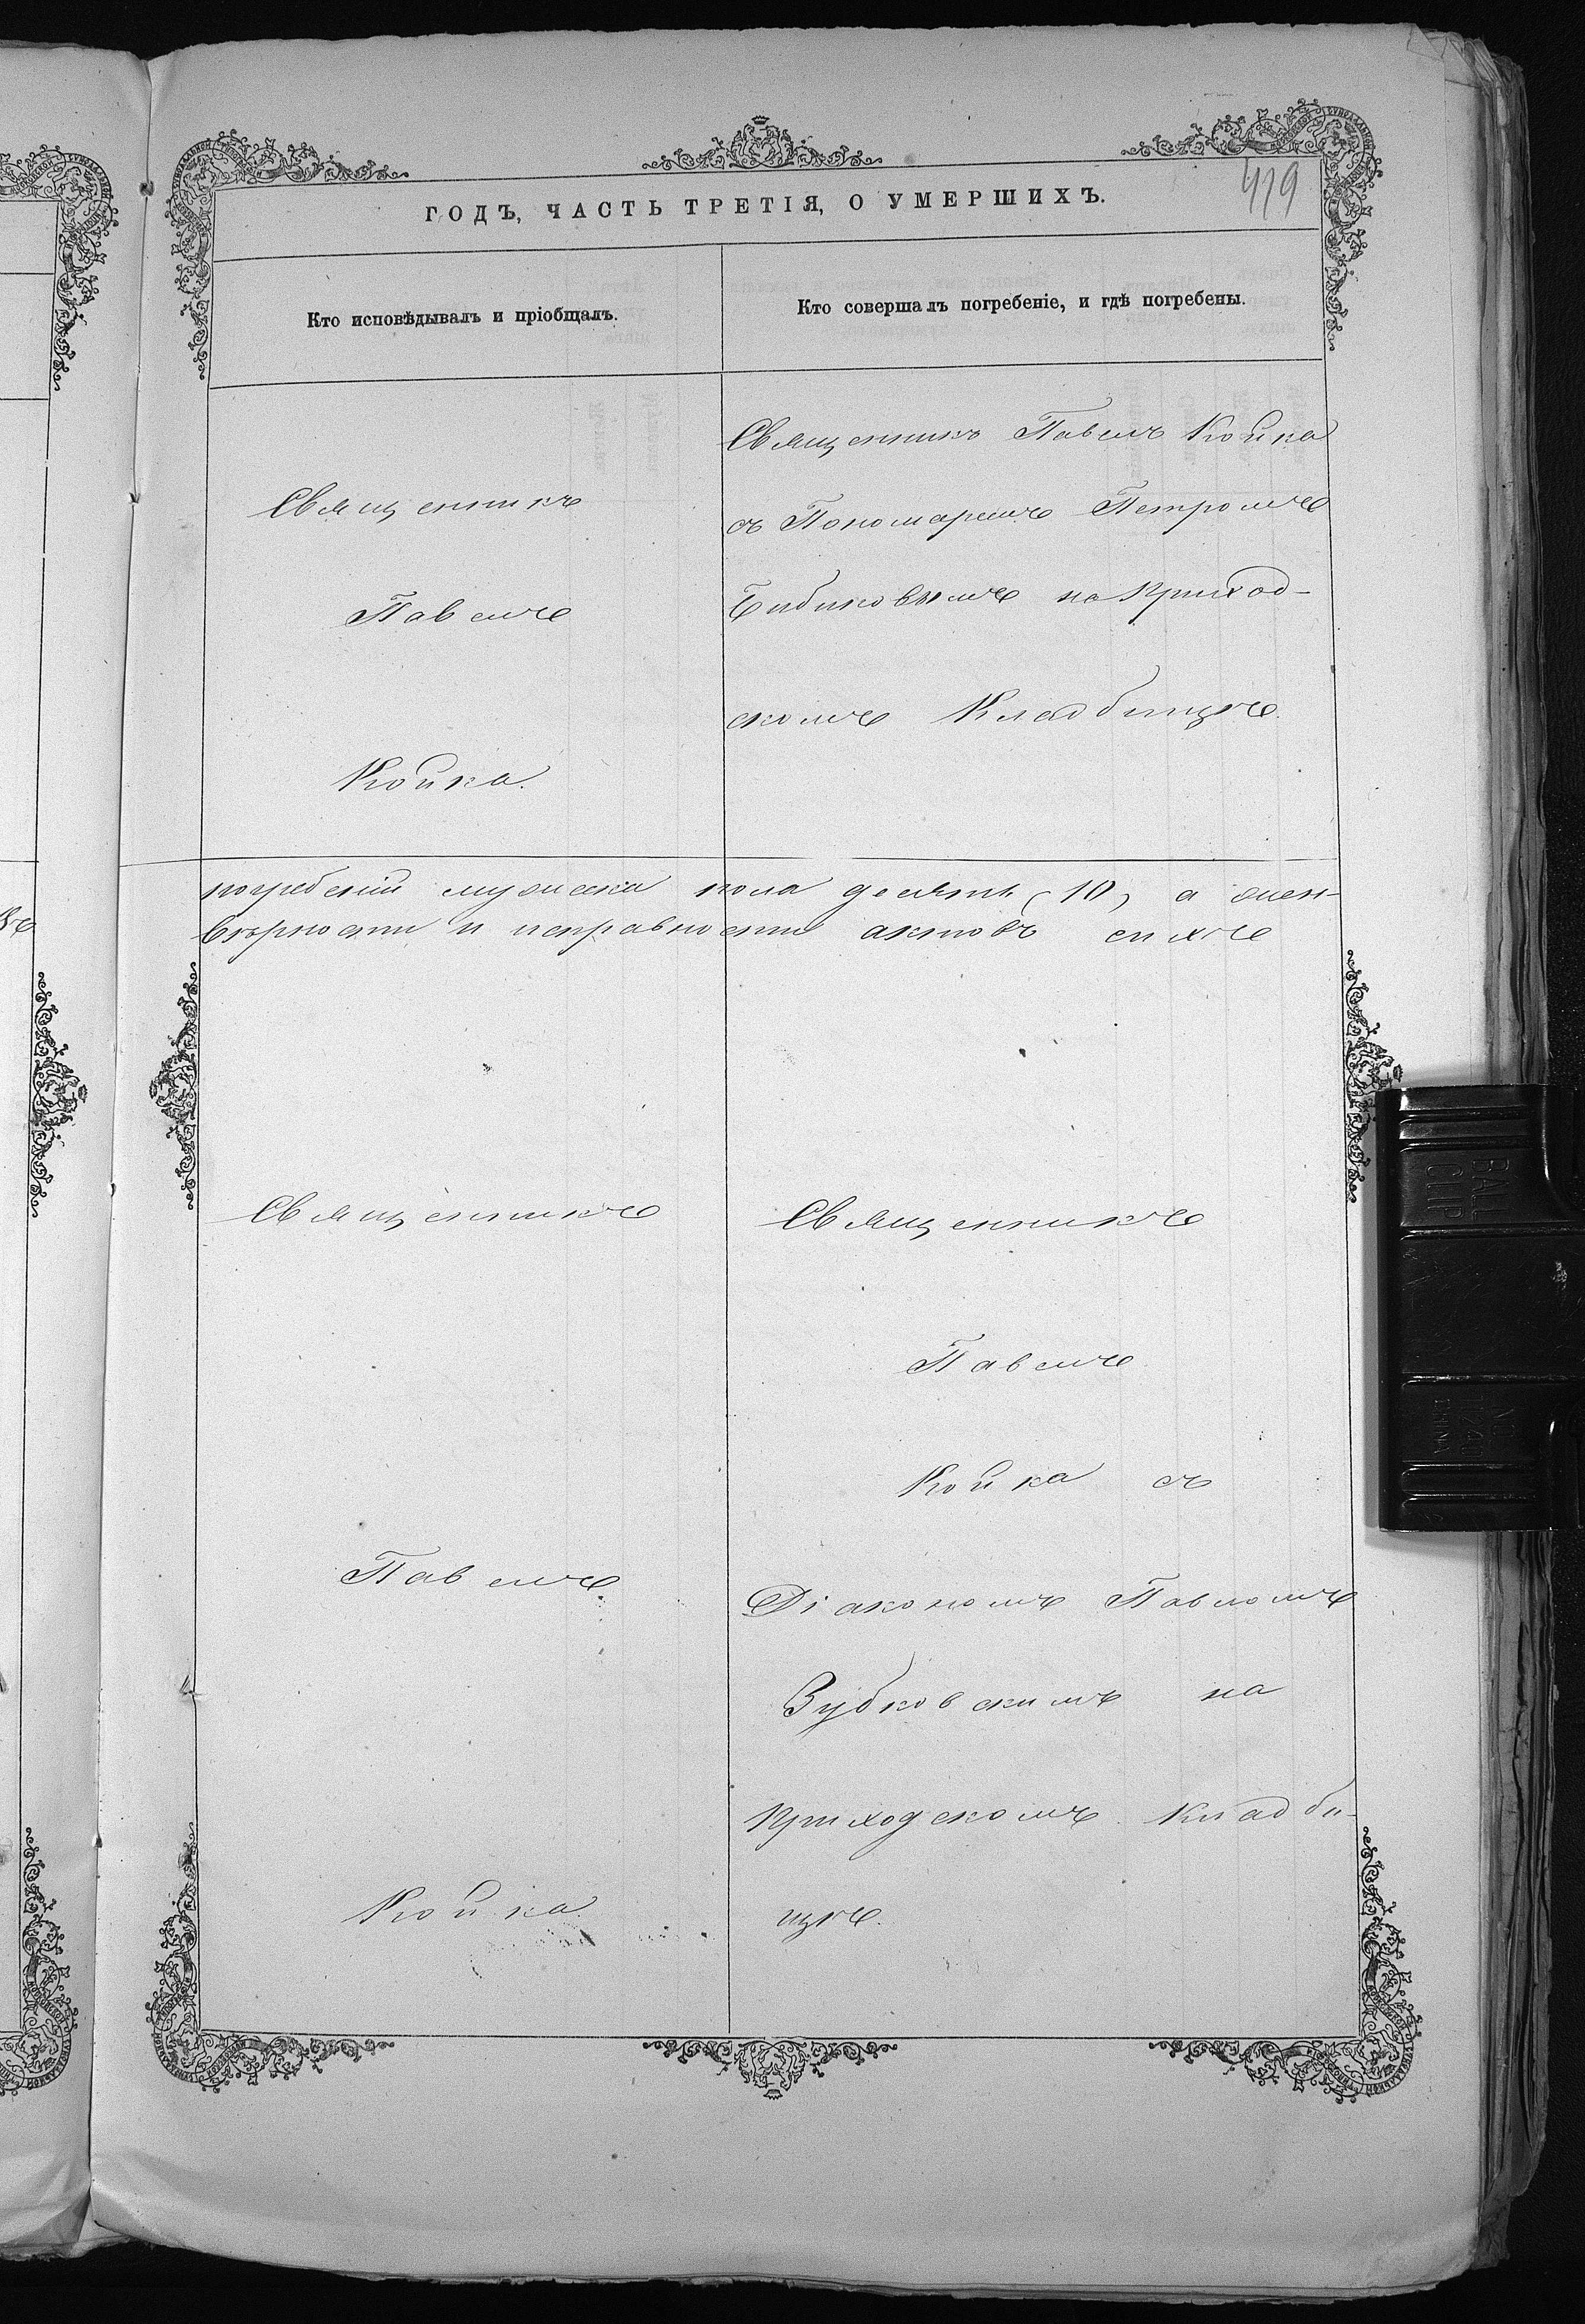 419
ГОДЪ, ЧАСТЬ ТРЕТІЯ, О УМЕРШИХЪ.
Кто исповѣдывалъ и пріобщалъ.
Кто совершалъ погребеніе, и гдѣ погребены.
Священникъ
Павелъ
Койка.
Священникъ Павелъ Койка
съ Пономаремъ Петромъ
Бибиковымъ на приход-
скомъ Кладбищѣ.
погребеній мужеска пола десять (10) а жен-
вѣрности и исправности актовъ сихъ
Священникъ
Павелъ
Койка.
Священникъ
Павелъ
Койка съ
Діакономъ Павломъ
Зубковскимъ на
приходскомъ кладби-
щѣ.
BALL
CLIP